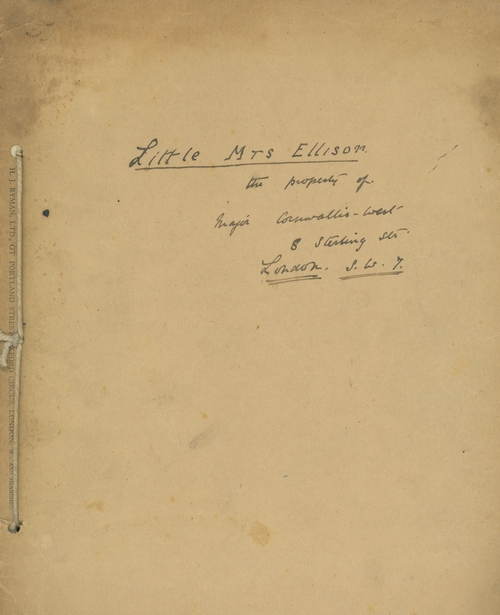 Little Mrs Ellison.
the property of.
Major Cornwallis-West
8 Sterling Str.
London. S.W. 7.
H. J. RYMAN, LTD., GT PORTLAND STREET, OXFORD CIRCUS, LONDON, W.